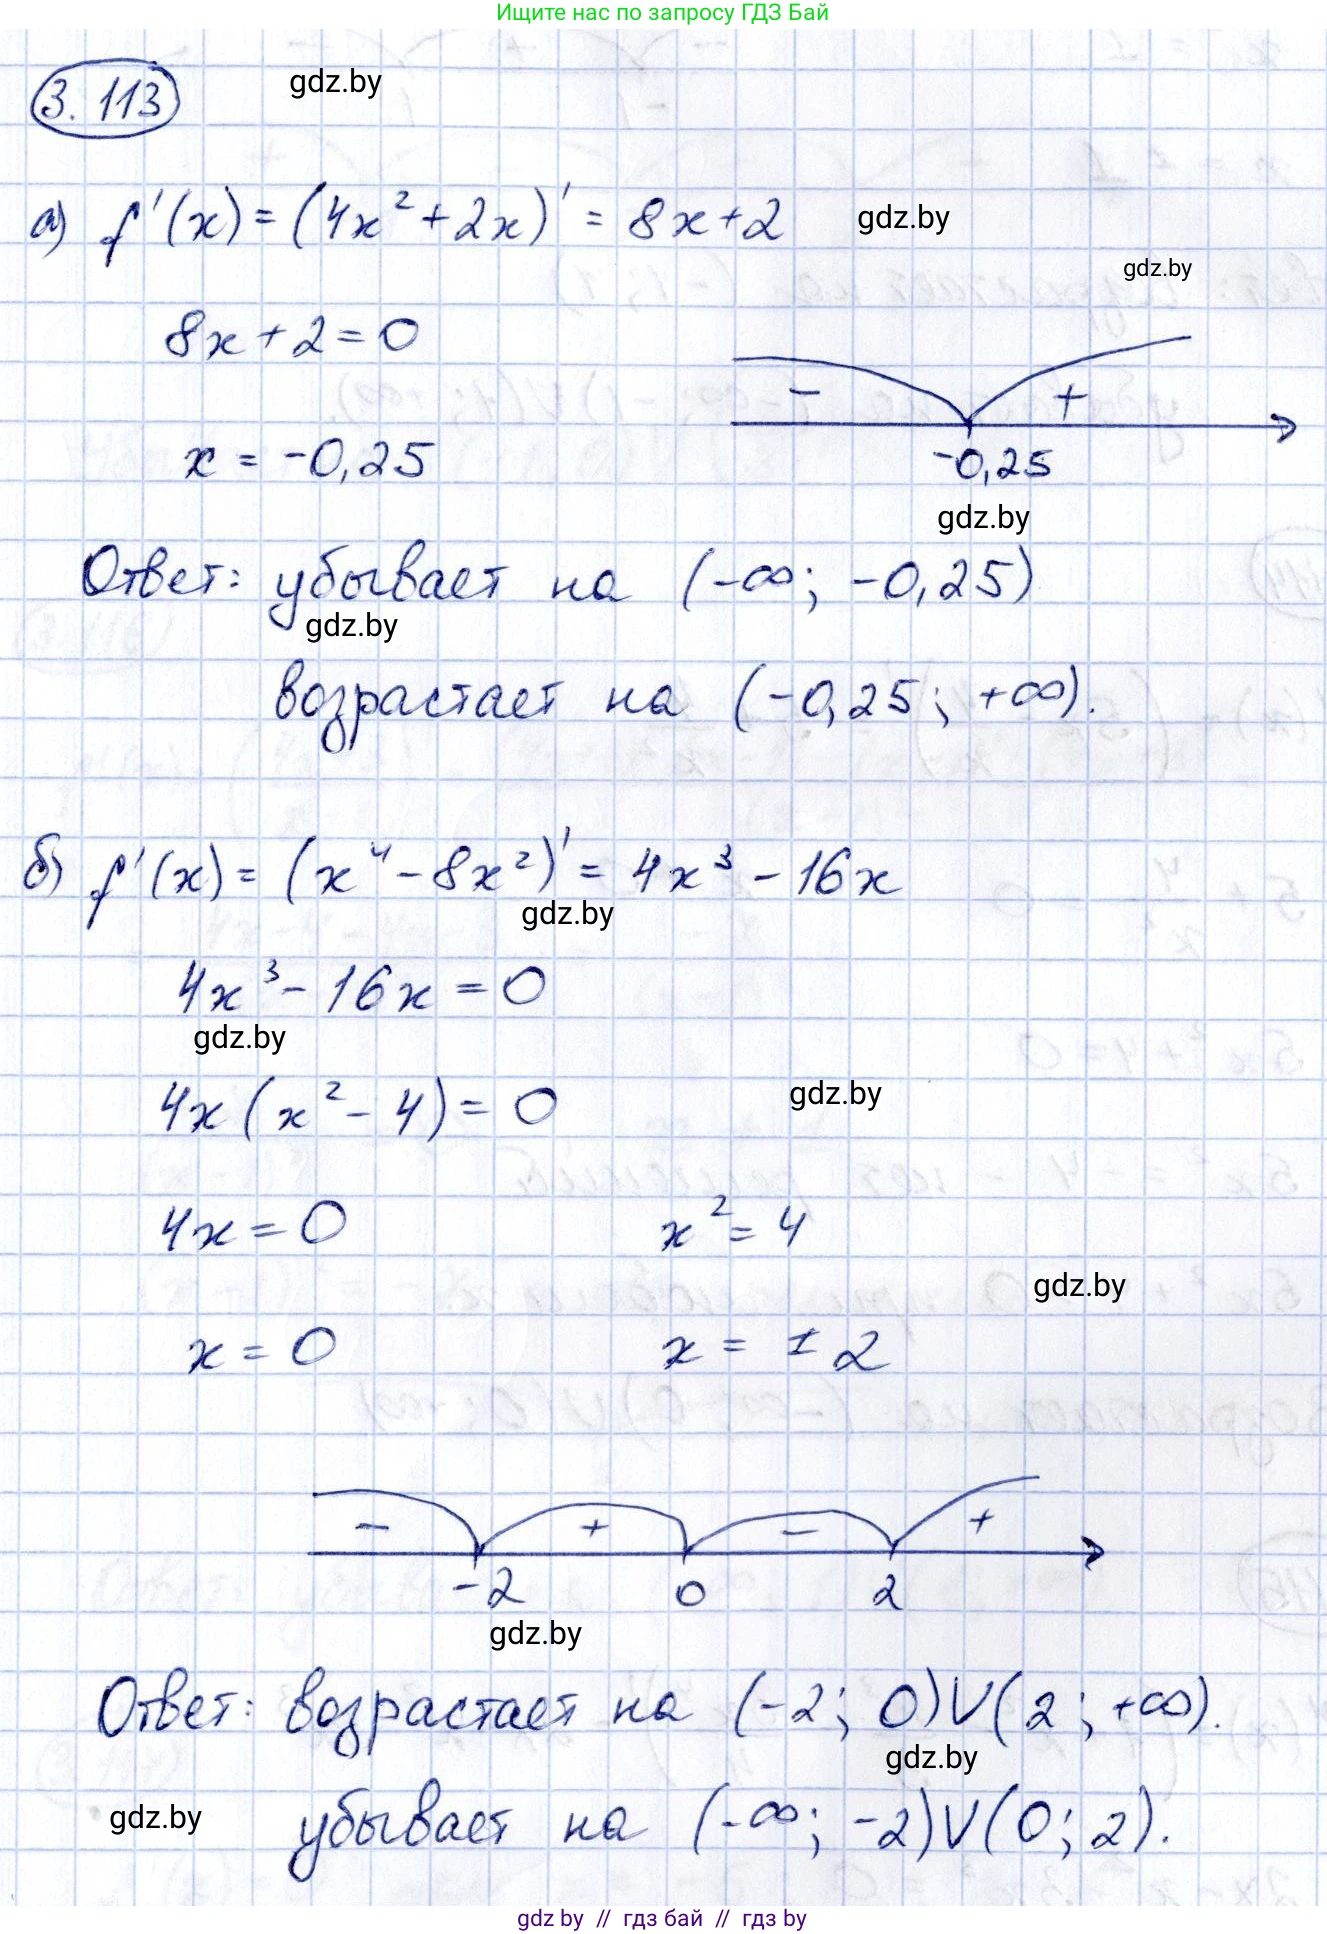 Ищите нас по запросу ГДЗ Бай
3.113
gdz.by
а) f'(x) = (4x² + 2x)' = 8x + 2
gdz.by
gdz.by
8x + 2 = 0
- +
x = -0,25
-0,25
gdz.by
Ответ: убывает на (-∞; -0,25)
gdz.by
возрастает на (-0,25; +∞).
б) f'(x) = (x⁴ - 8x²)' = 4x³ - 16x
gdz.by
4x³ - 16x = 0
gdz.by
4x(x² - 4) = 0
gdz.by
4x = 0 x² = 4
gdz.by
x = 0 x = ±2
- + - +
-2 0 2
gdz.by
Ответ: возрастает на (-2; 0)∪(2; +∞).
gdz.by
gdz.by
убывает на (-∞; -2)∪(0; 2).
gdz by // гдз бай // гдз by